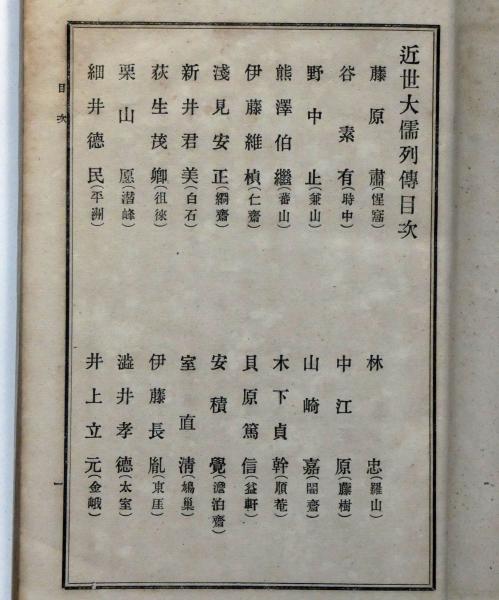 近世大儒列傳目次
藤原肅(惺窩)
林忠(羅山)
谷素有(時中)
中江原(藤樹)
野中止(兼山)
山崎嘉(闇齋)
熊澤伯繼(蕃山)
木下貞幹(順菴)
伊藤維楨(仁齋)
貝原篤信(益軒)
淺見安正(絅齋)
安積覺(澹泊齋)
新井君美(白石)
室直淸(鳩巢)
荻生茂卿(徂徠)
伊藤長胤(東厓)
栗山愿(潛峰)
澁井孝德(太室)
細井德民(平洲)
井上立元(金峨)
目次
一